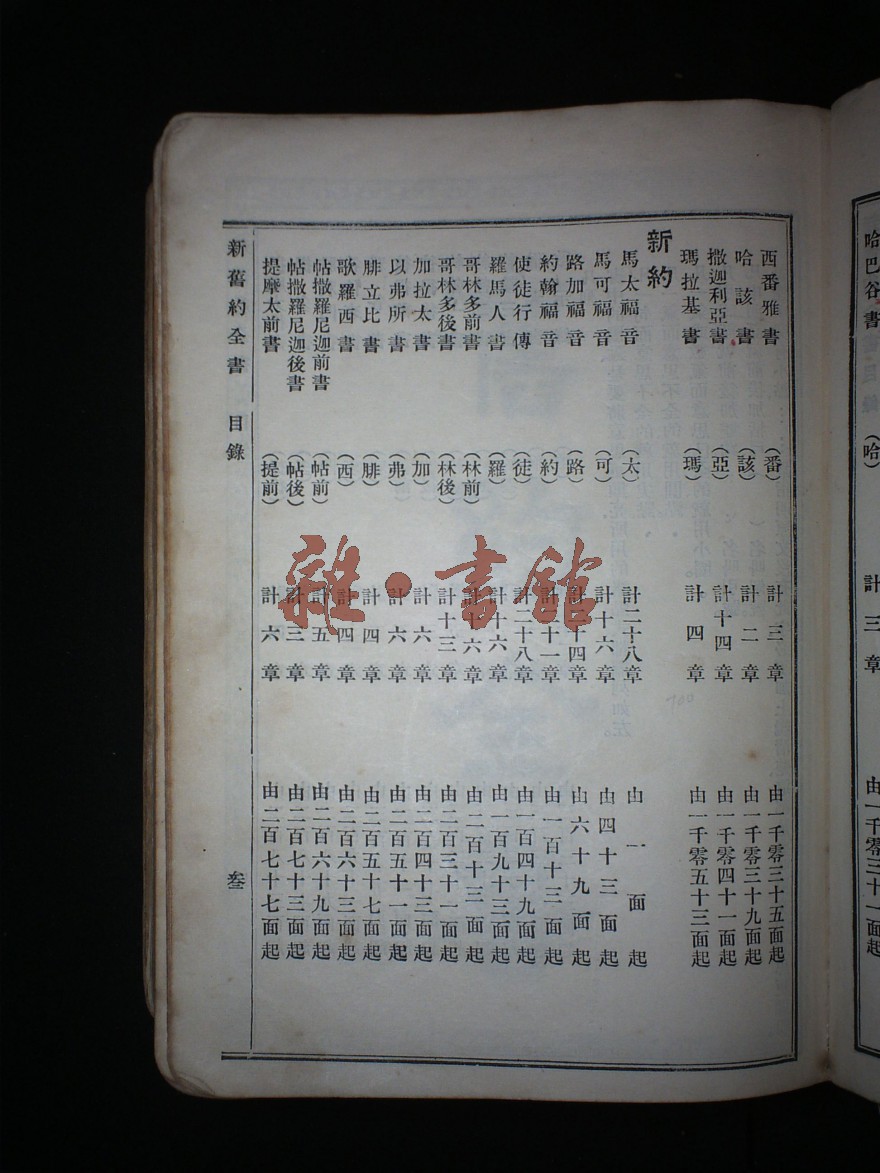 哈巴谷書 (哈) 計三章 由一千零三十一面起
西番雅書 (番) 計三章 由一千零三十五面起
哈該書 (該) 計二章 由一千零三十九面起
撒迦利亞書 (亞) 計十四章 由一千零四十一面起
瑪拉基書 (瑪) 計四章 由一千零五十三面起
新約
馬太福音 (太) 計二十八章 由一面起
馬可福音 (可) 計十六章 由四十三面起
路加福音 (路) 計二十四章 由六十九面起
約翰福音 (約) 計二十一章 由一百十三面起
使徒行傳 (徒) 計二十八章 由一百四十九面起
羅馬人書 (羅) 計十六章 由一百九十三面起
哥林多前書 (林前) 計十六章 由二百十三面起
哥林多後書 (林後) 計十三章 由二百三十一面起
加拉太書 (加) 計六章 由二百四十三面起
以弗所書 (弗) 計六章 由二百五十一面起
腓立比書 (腓) 計四章 由二百五十七面起
歌羅西書 (西) 計四章 由二百六十三面起
帖撒羅尼迦前書 (帖前) 計五章 由二百六十九面起
帖撒羅尼迦後書 (帖後) 計三章 由二百七十三面起
提摩太前書 (提前) 計六章 由二百七十七面起
新舊約全書 目錄 叁
雜·書館